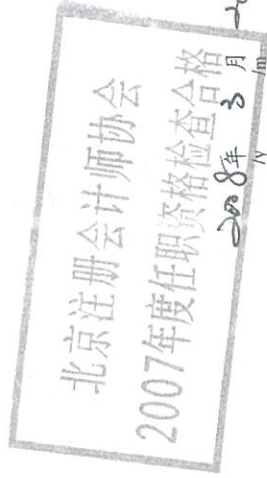 北京注册会计师协会
2007年度任职资格检查合格
2008年 3 月
/y /m